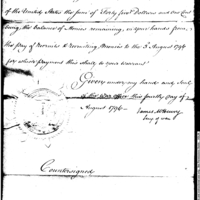 of the United States the sum of Sixty four Dollars and one Cent
being the balance of Monies remaining in hands from
the Pay of Recruits to Recruiting Monies to the 3 August 1796
for which payment this shall be your Warrant
Given under my hand and Seal
of the War Office this fourth day of
August 1796
James McHenry
Secy of War
Countersigned